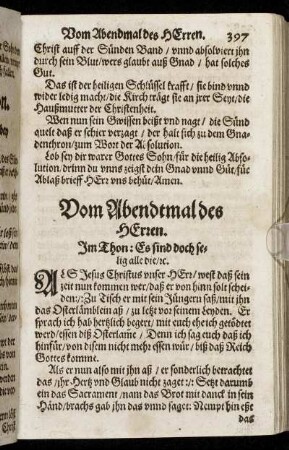 Vom Abendmal des HErren. 397
Christ auff der Sünden Band / vnnd absolviert jhn
durch sein Blut / wers glaubt auß Gnad / hat solches
Gut.
Das ist der heiligen Schlüssel krafft / sie bind vnnd
wider ledig macht / die Kirch trägt sie an jrer Seyt / die
Haußmutter der Christenheit.
Wen nun sein Gwissen beißt vnd nagt / die Sünd
quelt daß er schier verzagt / der halt sich zu dem Gna-
denthron / zum Wort der Absolution.
Lob sey dir warer Gottes Sohn / für die heilig Abso-
lution / drinn du vnns zeigst dein Gnad vnnd Güt / für
Ablaß brieff HErr vns behüt / Amen.
Vom Abendtmal des
HErren.
Im Thon: Es sind doch se-
lig alle die / ꝛc.
ALS Jesus Christus vnser HErr / west daß sein
zeit nun kommen wer / daß er von hinn solt schei-
den / :/: Zu Tisch er mit sein Jüngern saß / mit jhn
das Osterlämblein aß / zu letzt vor seinem Leyden. Er
sprach ich hab hertzlich begert / mit euch eh eich getödtet
werd / essen diß Osterlame / Denn ich sag euch daß ich
hinfür / von disem nicht mehr essen wür / biß daß Reich
Gottes komme.
Als er nun also mit jhn aß / er sonderlich betrachtet
das / jhr Hertz vnd Glaub nicht zaget :/: Setzt darumb
ein das Sacrament / nam das Brot mit danck in sein
Händ / brachs gab jhn das vnnd saget: Nempt hin eßt
das